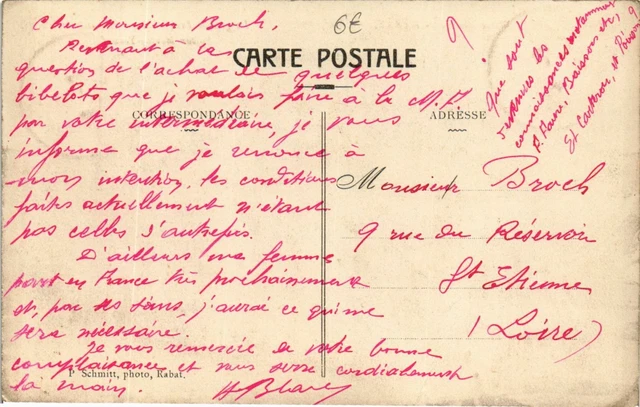 Cher Monsieur Broch,
6€
CARTE POSTALE
Revenant à la
question de l'achat de quelques
bibelots que je voulais faire à la M. J.
CORRESPONDANCE
par votre intermédiaire, je vous
informe que je renonce à
mon intention, les conditions
faites actuellement n'étant
pas celles d'autrefois.
D'ailleurs ma femme
part en France très prochainement
et, par ses soins, j'aurai ce qui me
sera nécessaire.
Je vous remercie de votre bonne
complaisance et vous serre cordialement
la main.
P. Schmitt, photo, Rabat.
ADRESSE
Monsieur Broch
9 rue du Réservoir
St Etienne
(Loire)
9
Que sont
devenues les
connaissances notamment
et Poisson